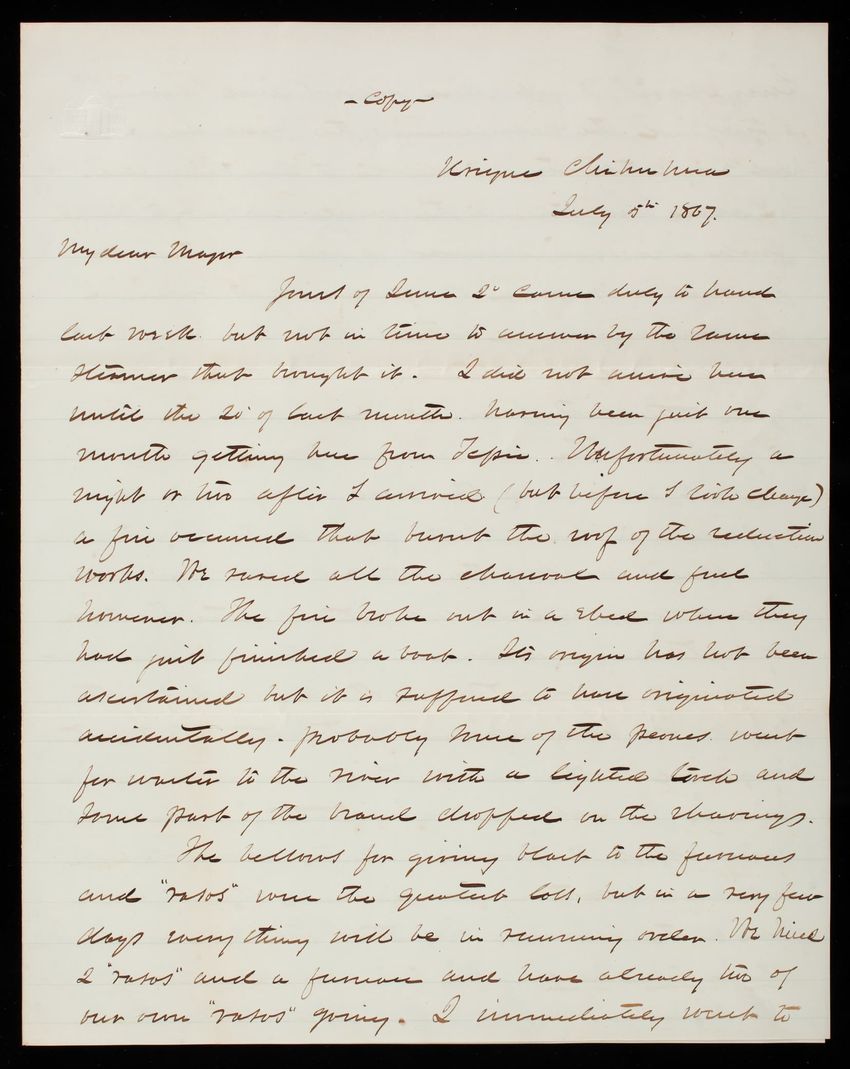 - Copy -
Urique Chihuhua
July 5th 1867.
My dear Major
Yours of June 2d came duly to hand
last week. but not in time to answer by the same
steamer that brought it. I did not arrive here
until the 20' of last month. having been just one
month getting here from Tepic. Unfortunately a
night or two after I arrived (but before I took charge)
a fire occurred that burnt the roof of the reduction
works. We saved all the charcoal and fuel
however. The fire broke out in a shed where they
had just finished a boat. Its origin has not been
ascertained but it is supposed to have originated
accidentally - probably some of the peones went
for water to the river with a lighted torch and
some part of the brand dropped on the shavings.
The bellows for giving blast to the furnaces
and "vasos" were the greatest loss, but in a very few
days everything will be in running order. We hired
2 "vasos" and a furnace and have already two of
our own "vasos" going. I immediately went to